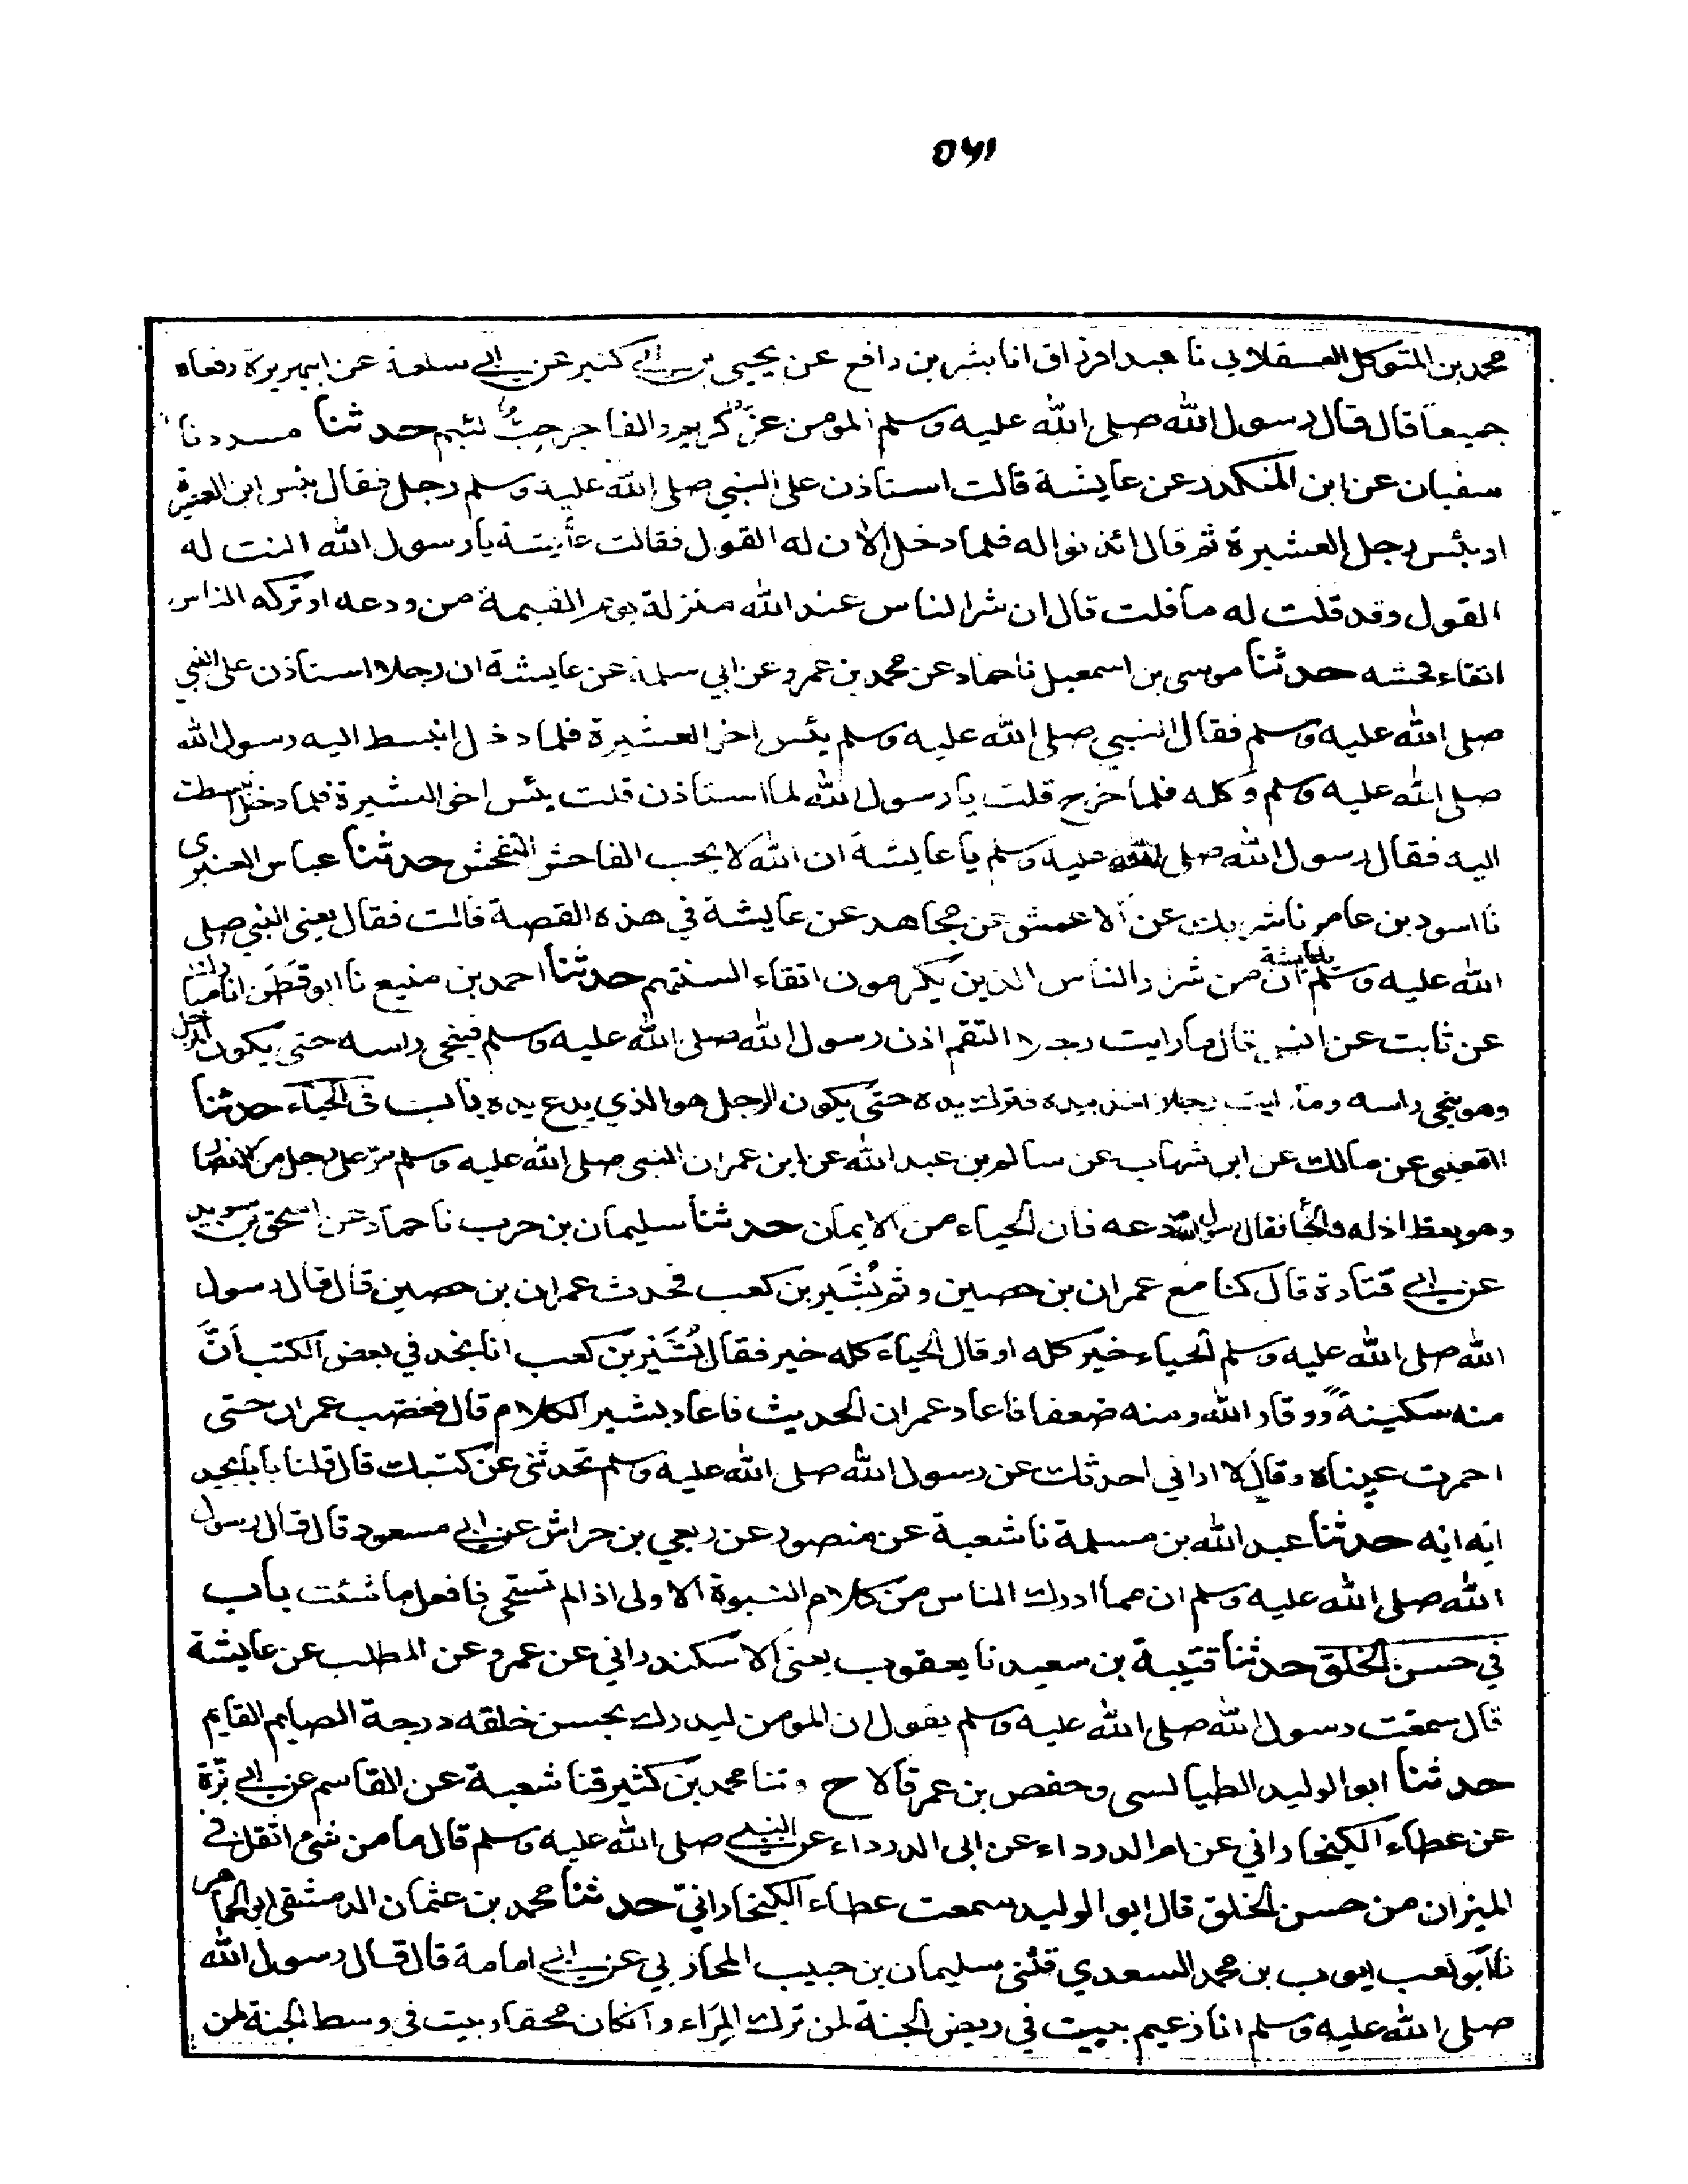 محمد بن المتوكل العسقلاني نا عبد الرزاق انا بشر بن رافع عن يحيى بن ابي كثير عن ابي سلمة عن ابي هريرة رفعاه
جميعا قال قال رسول الله صلى الله عليه وسلم المومن غر كريم والفاجر خب لئيم حدثنا مسدد نا
سفيان عن ابن المنكدر عن عايشة قالت استاذن على النبي صلى الله عليه وسلم رجل فقال بئس ابن العشيرة
او بئس رجل العشيرة ثم قال ائذنوا له فلما دخل الان له القول فقالت عايشة يا رسول الله النت له
القول وقد قلت له ما قلت قال ان شر الناس عند الله منزلة يوم القيمة من ودعه او تركه الناس
اتقاء فحشه حدثنا موسى بن اسمعيل نا حماد عن محمد بن عمرو عن ابي سلمة عن عايشة ان رجلا استاذن على النبي
صلى الله عليه وسلم فقال النبي صلى الله عليه وسلم بئس اخو العشيرة فلما دخل انبسط اليه رسول الله
صلى الله عليه وسلم وكلمه فلما خرج قلت يا رسول الله لما استاذن قلت بئس اخو العشيرة فلما دخل انبسطت
اليه فقال رسول الله صلى الله عليه وسلم يا عايشة ان الله لا يحب الفاحش المتفحش حدثنا عباس العنبري
نا اسود بن عامر نا شريك عن الاعمش عن مجاهد عن عايشة في هذه القصة قالت فقال يعني النبي صلى
الله عليه وسلم يا عايشة ان من شرار الناس الذين يكرمون اتقاء السنتهم حدثنا احمد بن منيع نا ابو قطن انا مبارك
عن ثابت عن انس قال ما رايت رجلا التقم اذن رسول الله صلى الله عليه وسلم فينحي راسه حتى يكون الرجل
وهو ينحي راسه وما رايت رجلا اخذ بيده فترك يده حتى يكون الرجل هو الذي يدع يده باب في الحياء حدثنا
القعنبي عن مالك عن ابن شهاب عن سالم بن عبد الله عن ابن عمر ان النبي صلى الله عليه وسلم مر على رجل من الانصار
وهو يعظ اخاه في الحيا فقال رسول الله دعه فان الحياء من الايمان حدثنا سليمان بن حرب نا حماد عن اسحق بن سويد
عن ابي قتادة قال كنا مع عمران بن حصين وثم بشير بن كعب فحدث عمران بن حصين قال قال رسول
الله صلى الله عليه وسلم الحياء خير كله او قال الحياء كله خير فقال بشير بن كعب انا نجد في بعض الكتب ان
منه سكينة ووقارا لله ومنه ضعفا فاعاد عمران الحديث فاعاد بشير الكلام قال فغضب عمران حتى
احمرت عيناه وقال الا اراني احدثك عن رسول الله صلى الله عليه وسلم تحدثني عن كتبك قال قلنا يا با نجيد
ايه ايه حدثنا عبد الله بن مسلمة نا شعبة عن منصور عن ربعي بن حراش عن ابي مسعود قال قال رسول
الله صلى الله عليه وسلم ان مما ادرك الناس من كلام النبوة الاولى اذا لم تستحي فافعل ما شئت باب
في حسن الخلق حدثنا قتيبة بن سعيد نا يعقوب يعني الاسكندراني عن عمرو عن المطلب عن عايشة
قال سمعت رسول الله صلى الله عليه وسلم يقول ان المومن ليدرك بحسن خلقه درجة الصايم القايم
حدثنا ابو الوليد الطيالسي وحفص بن عمر قالا ح وثنا محمد بن كثير قنا شعبة عن القاسم عن ابي بزة
عن عطاء الكيخاراني عن ام الدرداء عن ابي الدرداء عن النبي صلى الله عليه وسلم قال ما من شئ اثقل في
الميزان من حسن الخلق قال ابو الوليد سمعت عطاء الكيخاراني حدثنا محمد بن عثمان الدمشقي ابو الجماهر
نا ابو كعب ايوب بن محمد السعدي قثني سليمان بن حبيب المحاربي عن ابي امامة قال قال رسول الله
صلى الله عليه وسلم انا زعيم ببيت في ربض الجنة لمن ترك المراء وان كان محقا وبيت في وسط الجنة لمن